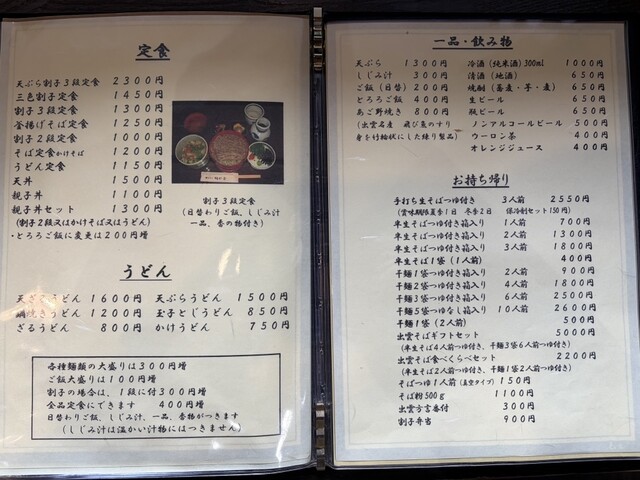 定食
天ぷら割子3段定食 2300円
三色割子定食 1450円
割子3段定食 1300円
釜揚げそば定食 1250円
割子2段定食 1000円
そば定食かけそば 1200円
うどん定食 1150円
天丼 1500円
親子丼 1100円
親子丼セット 1300円
(割子2段又はかけそば又はうどん)
・とろろご飯に変更は200円増
割子3段定食
(日替わりご飯、しじみ汁
一品、香の物付き)
うどん
天ざるうどん 1600円 天ぷらうどん 1500円
鍋焼きうどん 1200円 玉子とじうどん 850円
ざるうどん 800円 かけうどん 750円
各種麺類の大盛りは300円増
ご飯大盛りは100円増
割子の場合は、1段に付300円増
全品定食にできます 400円増
日替わりご飯、しじみ汁、一品、香物がつきます
(しじみ汁は温かい汁物にはつきません)
一品・飲み物
天ぷら 1300円 冷酒(純米酒)300ml 1000円
しじみ汁 300円 清酒(地酒) 650円
ご飯(日替) 200円 焼酎(蕎麦・芋・麦) 650円
とろろご飯 400円 生ビール 650円
あご野焼き 800円 瓶ビール 650円
(出雲名産 飛び魚のすり ノンアルコールビール 500円
身を竹輪状にした練り製品) ウーロン茶 400円
オレンジジュース 400円
お持ち帰り
手打ち生そばつゆ付き 3人前 2550円
(賞味期限夏季1日 冬季2日 保冷剤セット150円)
半生そばつゆ付き箱入り 1人前 700円
半生そばつゆ付き箱入り 2人前 1300円
半生そばつゆ付き箱入り 3人前 1800円
半生そば1袋(1人前) 400円
干麺1袋つゆ付き箱入り 2人前 900円
干麺2袋つゆ付き箱入り 4人前 1800円
干麺3袋つゆ付き箱入り 6人前 2500円
干麺5袋つゆなし箱入り 10人前 2600円
干麺1袋(2人前) 500円
出雲そばギフトセット 5000円
(半生そば4人前つゆ付き、干麺3袋6人前つゆ付き)
出雲そば食べくらべセット 2200円
(半生そば2人前つゆ付き、干麺1袋2人前つゆ付き)
そばつゆ1人前(真空タイプ) 150円
そば粉500g 1100円
出雲方言番付 300円
割子弁当 900円